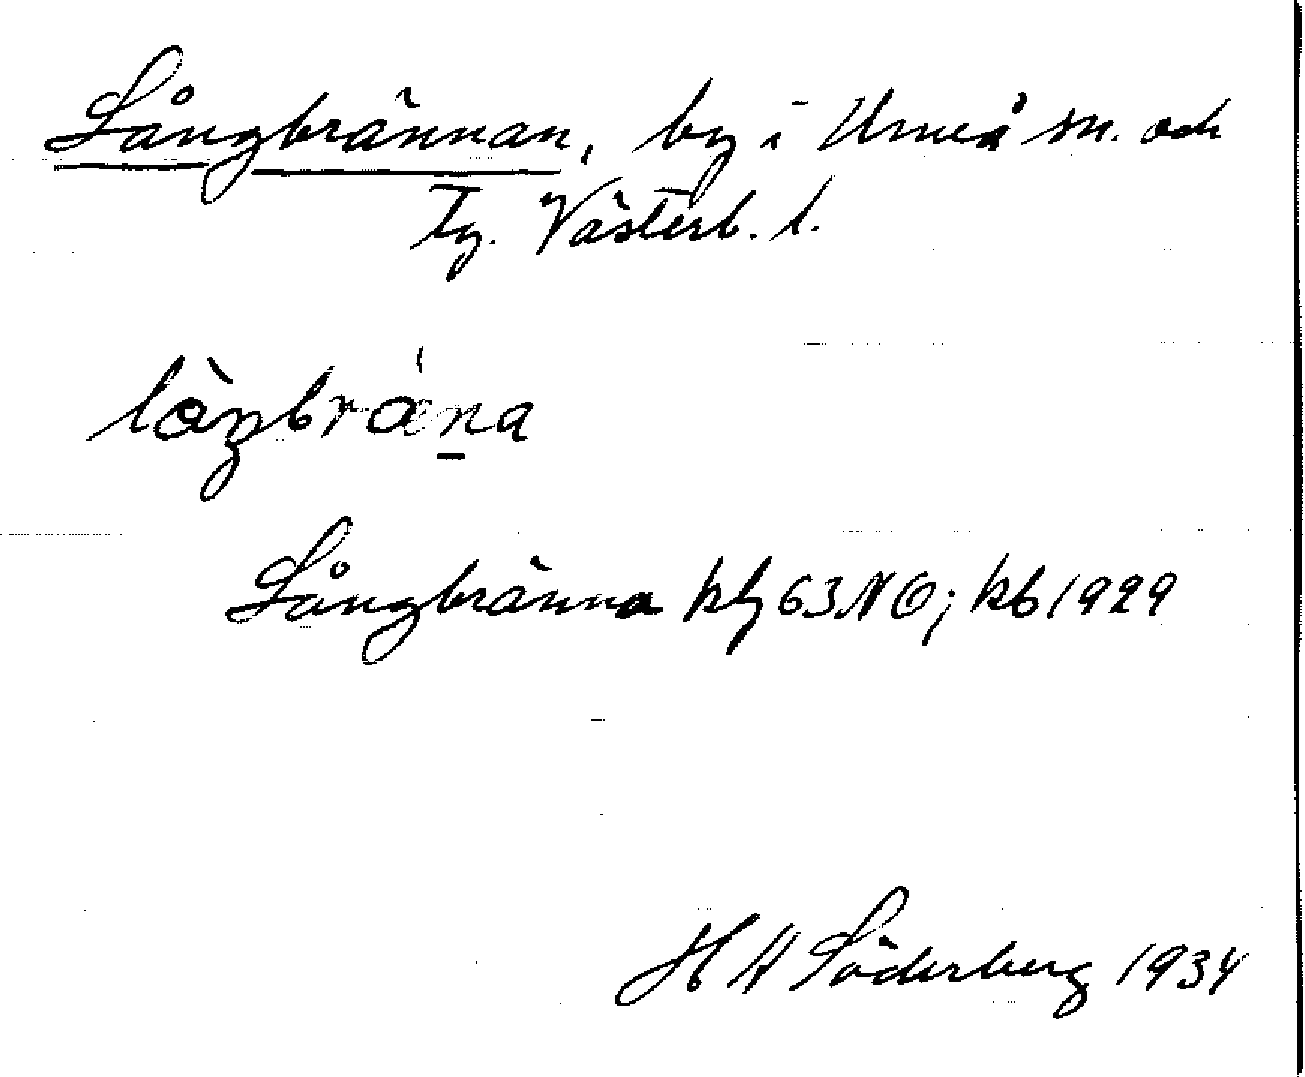 Långbrännan, by i Umeå sn. och
tg. Västerb. l.
làŋbræ̀na
Långbränna kbl 63 NO; kb 1929
H A Söderberg 1934